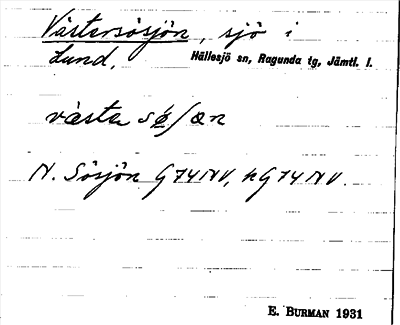 Västersösjön, sjö i
Lund, Hällesjö sn, Ragunda tg, Jämtl. l.
västa
N. Sösjön G74NV, h G74NV.
E. BURMAN 1931